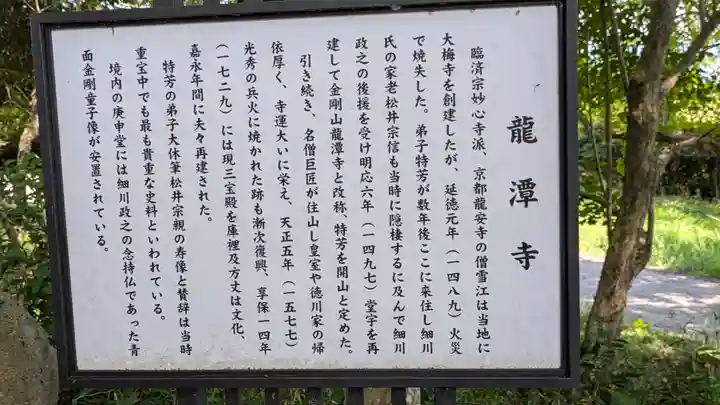 龍潭寺
臨済宗妙心寺派、京都龍安寺の僧雪江は当地に
大梅寺を創建したが、延徳元年（一四八九）火災
で焼失した。弟子特芳が数年後ここに来住し細川
氏の家老松井宗信も当時に隠棲するに及んで細川
政之の後援を受け明応六年（一四九七）堂宇を再
建して金剛山龍潭寺と改称、特芳を開山と定めた。
引き続き、名僧巨匠が住山し皇室や徳川家の帰
依厚く、寺運大いに栄え、天正五年（一五七七）
光秀の兵火に焼かれた跡も漸次復興、享保一四年
（一七二九）には現三宝殿を庫裡及方丈は文化、
嘉永年間に夫々再建された。
特芳の弟子大休筆松井宗親の寿像と賛辞は当時
重宝中でも最も貴重な史料といわれている。
境内の庚申堂には細川政之の念持仏であった青
面金剛童子像が安置されている。